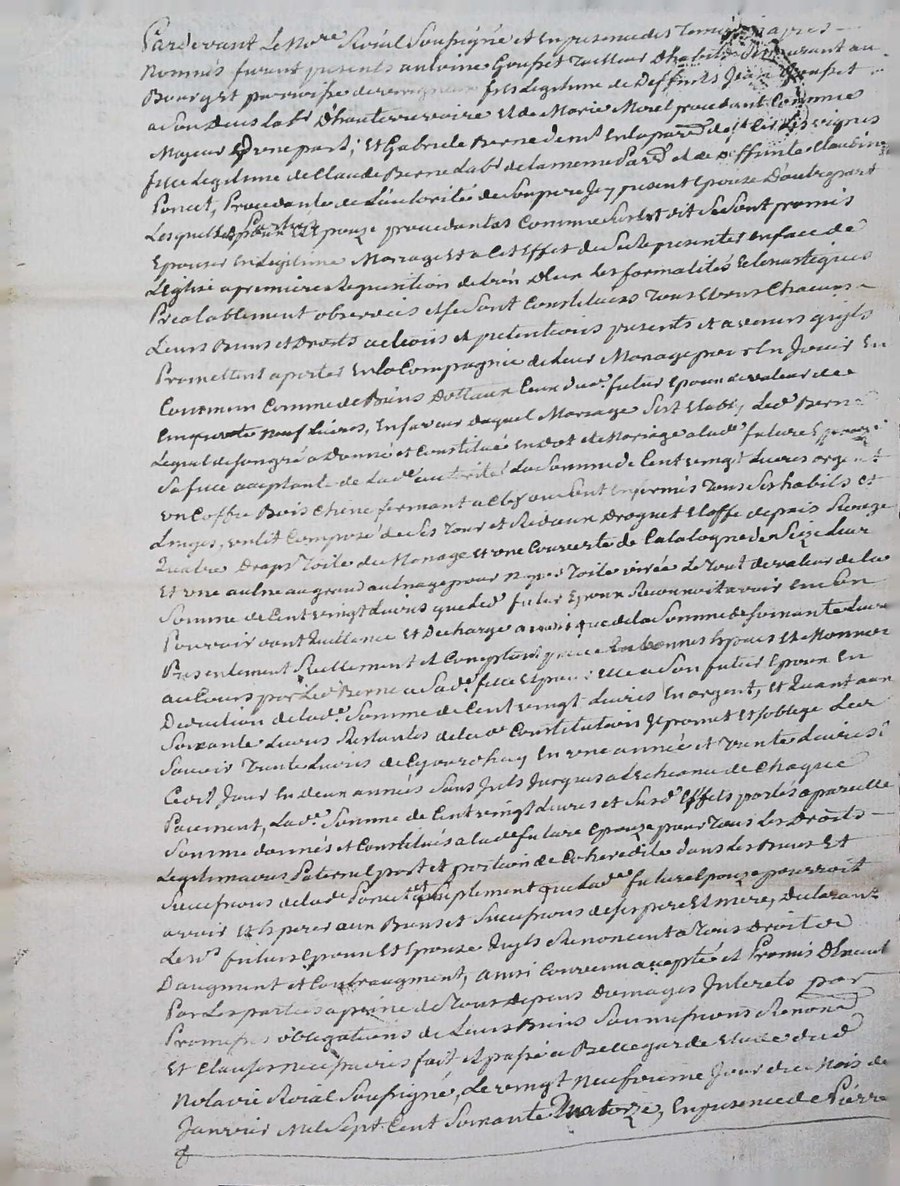 Pardevant Le No.re Roial Soussigné et En presence des Temoins apres
Nommés furent presents antoine Goufret Tailleur D'habits Demeurant au
Bourg et parroisse de fils Legitime de Deffunts Jean Goufret
a son Deces Lab.r D'hauterivoire Et de Marie Morel procedant Comme
Majeur D'une part; Et Gabriele Berne demt En la par.se de
fille Legitime de Claude Berne Lab.r de la meme Par.se et de Deffunte Claudine
Poncet, Procedante de L'autorité de Son pere Icy present Epouse D'autre part
Lesquelles parties procedantes Comme Sus Est dit Se Sont promis
Epouser En Legitime Mariage Et a Cet Effet de Se Representer En face de
L'Eglise a premiere Requisition de L'un D'eux Les formalités Eclesiastiques
Prealablement observées Et Se Sont Constitués Tous Et uns Chacuns
Leurs Biens et Droits actions et pretentions presents et avenirs qu'ils
Promettent aporter En la Compagnie de Leur Mariage pour En Jouir En
Commun Comme de Biens Dottaux Ceux du d. futur Epoux de valeur de
Cinquante neuf Livres, En faveur duquel Mariage Sest Etabli Led. Berne
Lequel de Son gré a Donné et Constitué En Dot et Mariage a lad. future Epouze
Sa fille aceptante de Lad. autorité La Somme de Cent vingt Livres argent
un Coffre Bois Chene fermant a Clef ou Sont Enfermés Tous Ses habits et
Linges, un Lit Composé de Ses Tour et Rideaux Droguet Etoffe de pais
Quatre Draps Toile de Menage et une Couverte de Catalogne de Seize Livres
Et une aulne au grand aulnage pour Toile Le Tout de valeur de la
Somme de Cent vingt Livres que led. futur Epoux Reconnoit avoir En Son
Pouvoir dont Quittance Et Decharge que de la Somme de Soixante Livres
Presentement Réellement et Comptant En bonnes Especes Et Monnoie
au Cours par Led. Berne a Sad. fille a Son futur Epoux En
Deduction de lad. Somme de Cent vingt Livres En argent, Et Quant aux
Soixante Livres Restantes de lad. Constitution Il promet Et Soblige Les
Savoir Trente Livres de Cejourdhuy En une année et Trente Livres
Jour En deux années Sans Interets Jusques a L'echeance de Chaque
Paiement, Lad. Somme de Cent vingt Livres et Susd. Effets portés a pareille
Somme donnés et Constitués a lad. future Epouze pour Tous Les Droits
Legitimaires Paternel part et portion de Coheredité dans Les Biens Et
Successions de lad. Poncet et Suplement que lad. future Epouze pourroit
avoir et Esperer aux Biens et Successions de Ses pere Et mere, Declarant
Les d. futurs Epoux Et Epouze qu'ils Renoncent a Tous Droit de
D'augment et Contraugment, ainsi Convenu accepté et Promis D'Executer
Par Les parties a peine de Tous Depens Domages Interets par
Promesses obligations de Leurs Biens Soumissions Renon.
Et Clauses necessaires fait et passé a Bellegarde Etude dud
Notaire Roial Soussigné, Le vingt Neufvieme Jour du Mois de
Janvier Mil Sept Cent Soixante Quatorze, En presence de Pierre